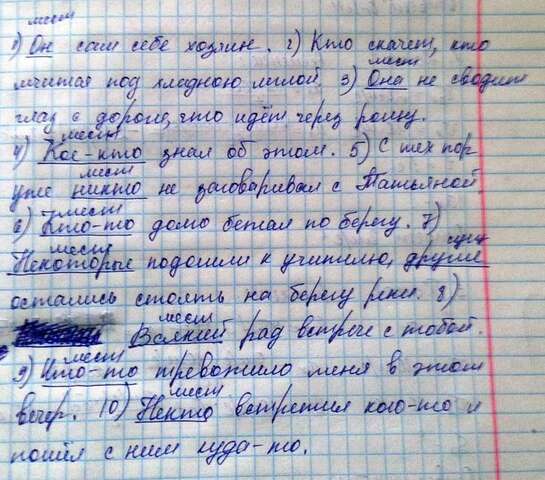 мест
1) Он сам себе хозяин. 2) Кто скачет, кто
мест
мчится под хладною мглой 3) Она не сводит
глаз с дороги, что идёт через рощу.
мест
4) Кое-кто знал об этом. 5) С тех пор
мест
уже никто не заговаривал с Татьяной.
мест
6) Кто-то долго бежал по берегу. 7)
мест сущ
Некоторые подошли к учителю, другие
остались стоять на берегу реки. 8)
мест
Всякий рад встрече с тобой.
мест
9) Что-то тревожило меня в этот
мест
вечер. 10) Некто встретил кого-то и
пошёл с ним куда-то.